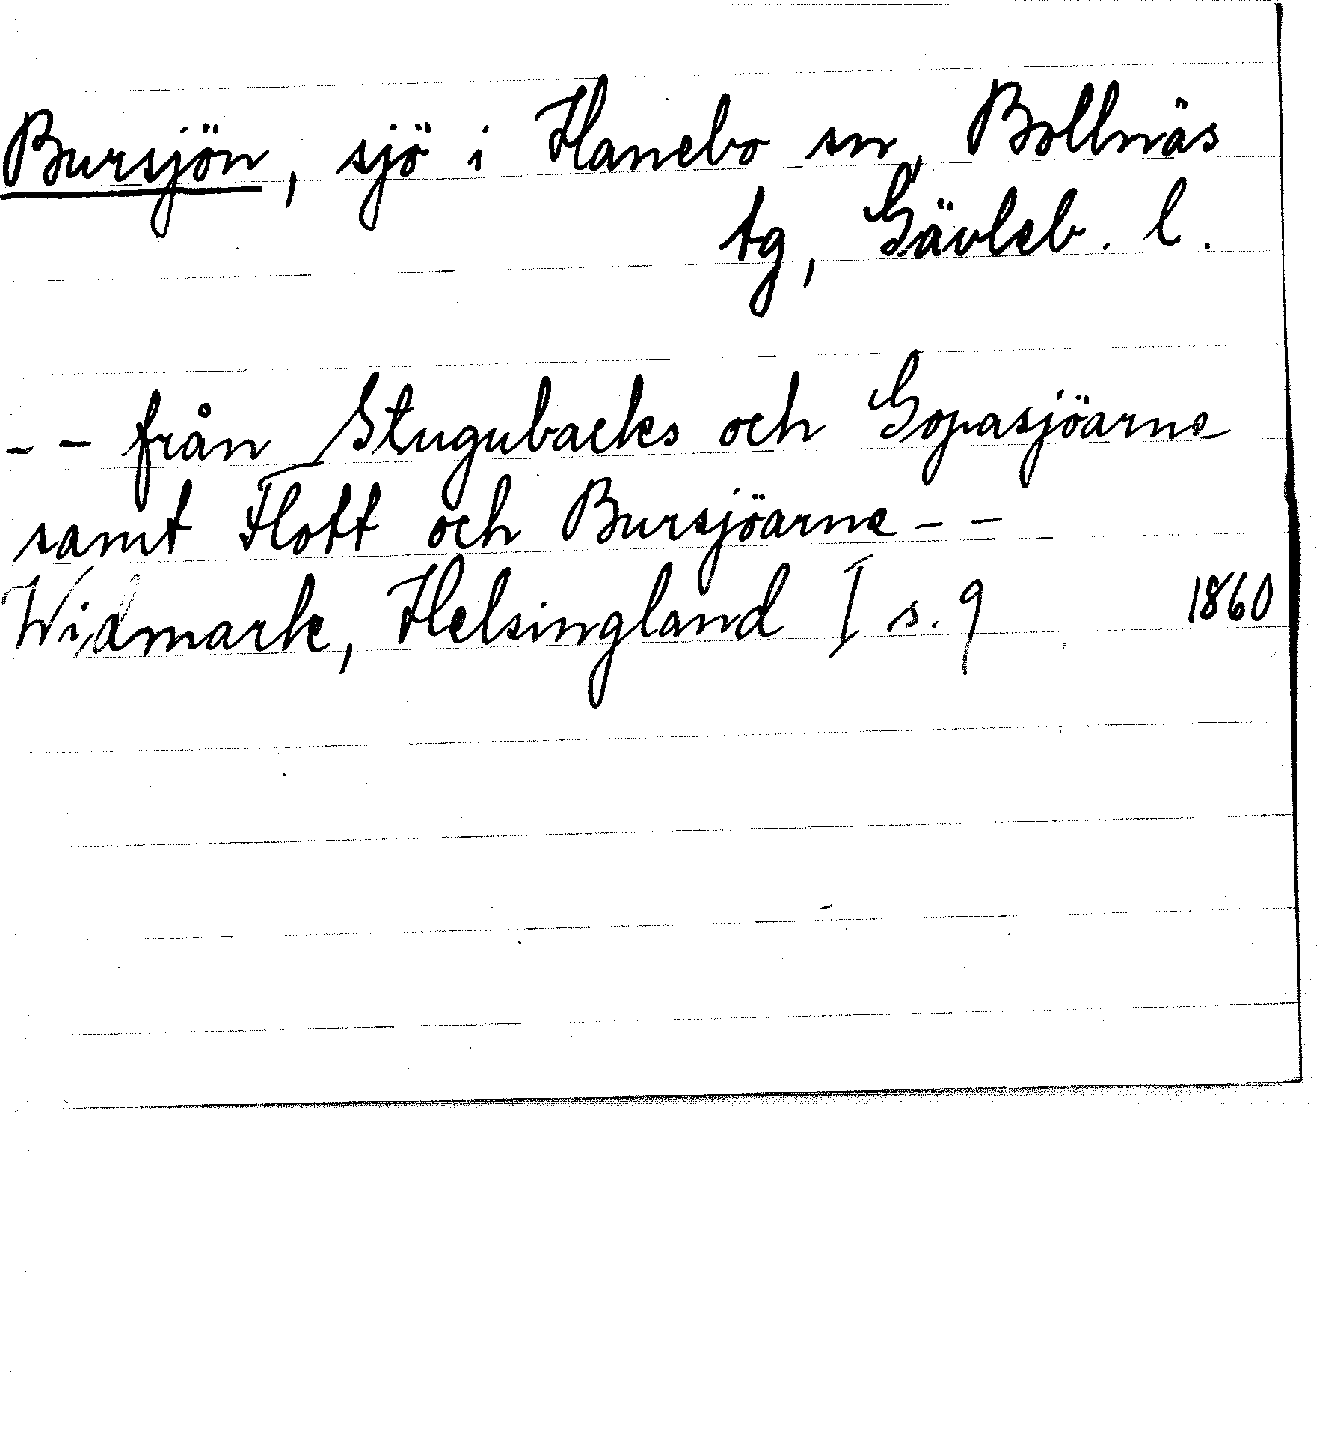 Bursjön, sjö i Hanebo sn, Bollnäs
tg, Gävleb. l.
-- från Stugubacks och Gopasjöarne
samt Flott och Bursjöarne --
Widmark, Helsingland I s. 9 1860